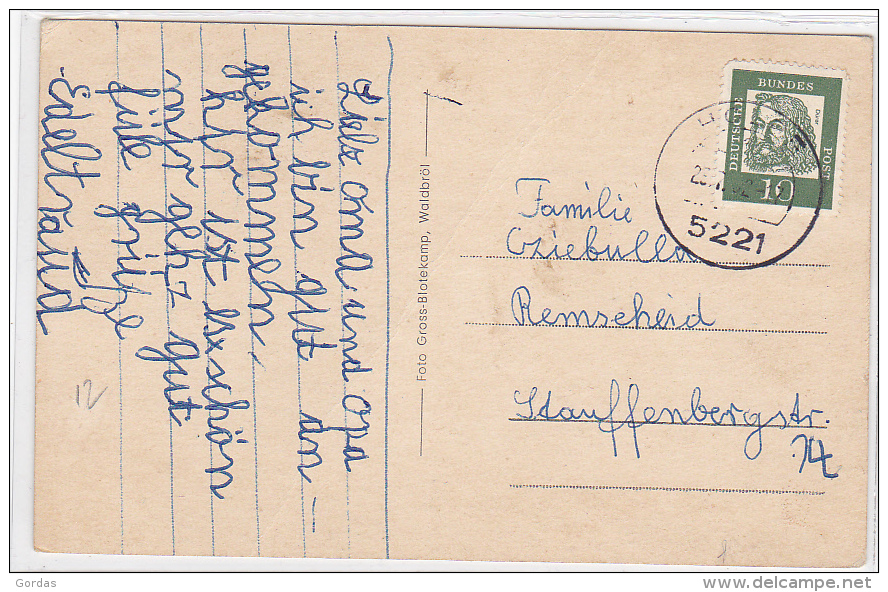 Liebe oma und Opa
ich bin gut an-
gekommen.
hir ist es schön
mir geht gut
file grüße
Edeltraud
12
Foto Gross-Blotekamp, Waldbröl
DEUTSCHE BUNDES POST
Dürer
10
5221
Familie
Remscheid
Stauffenbergstr.
14
Gordas
delcampe.net